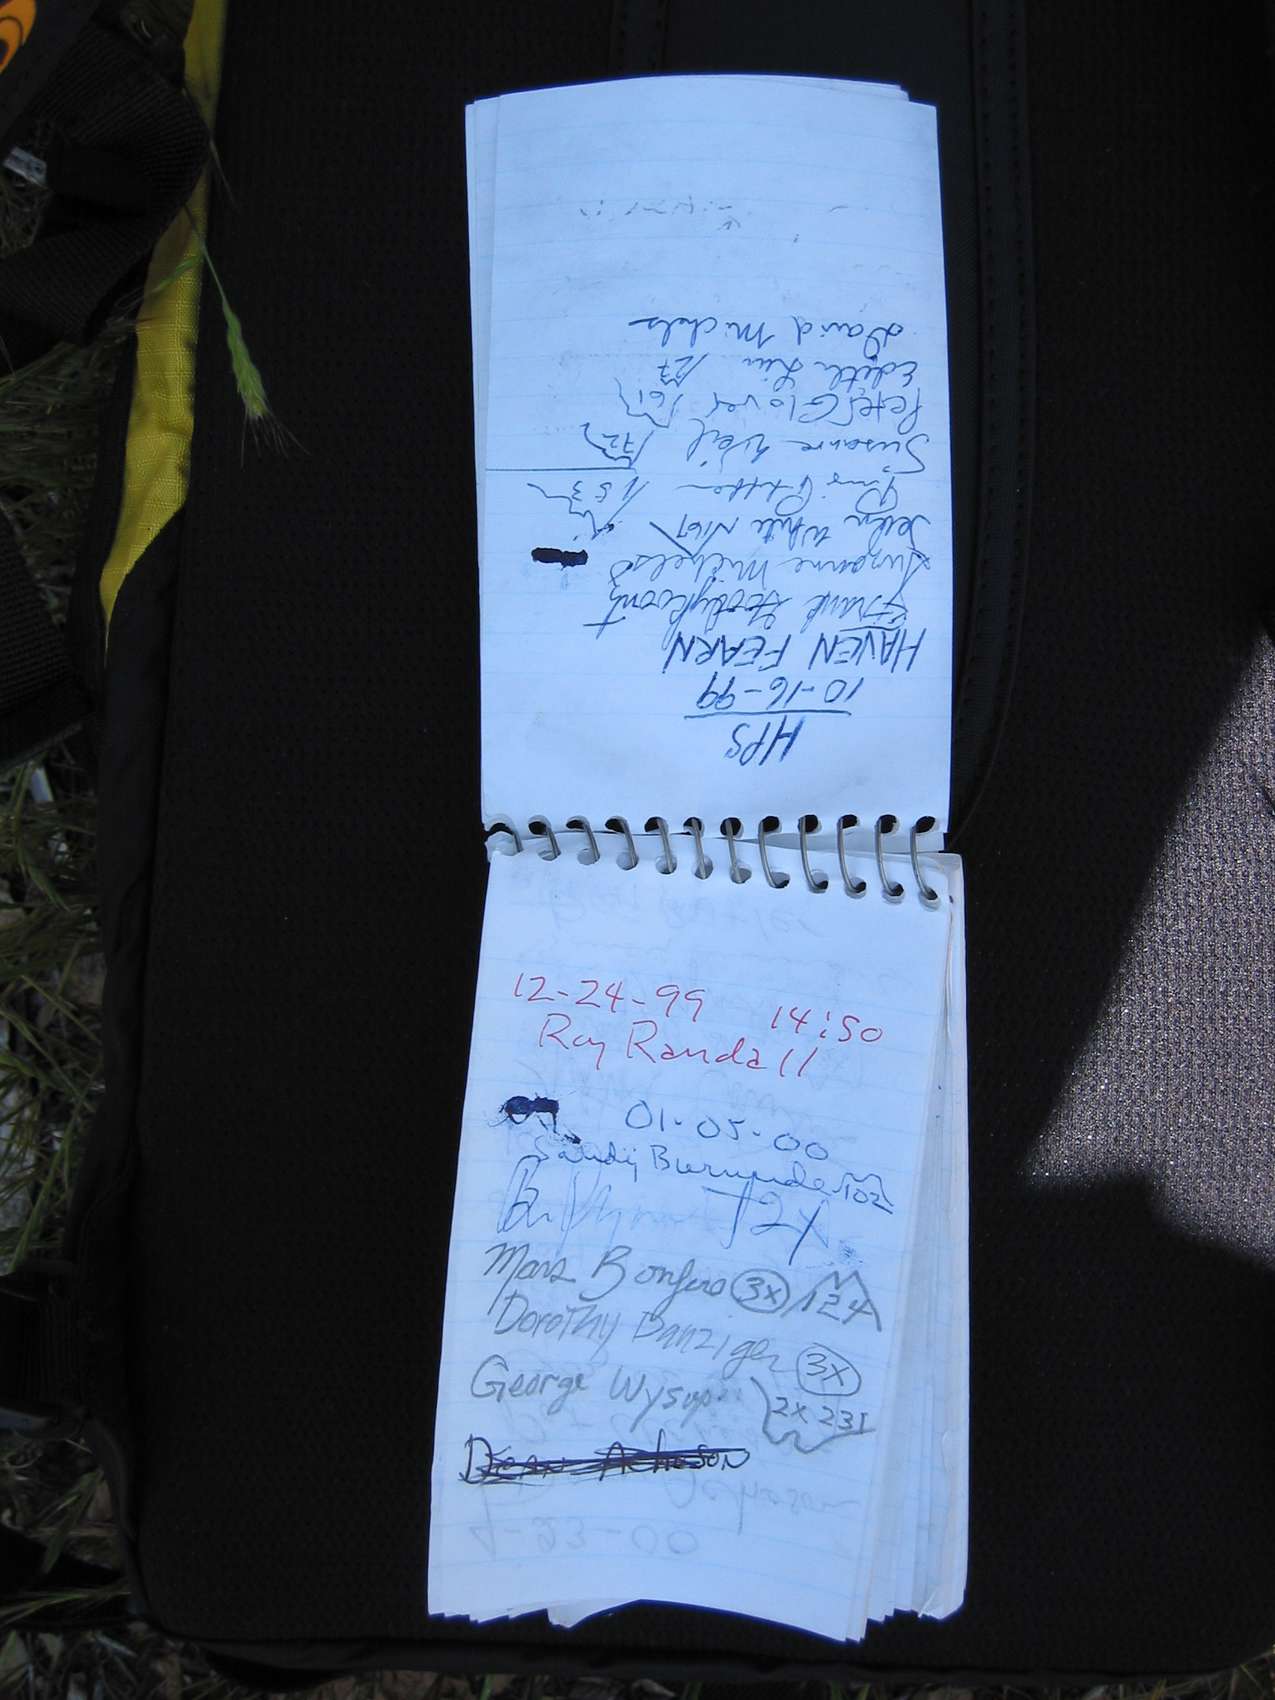 HPS
10-16-99
HAVEN FEARN
Frank
Suzanne Michels
White 167
153
Susanne 172
Peter Glover 161
Edith Liu 127
David Michels
12-24-99 14:50
Roy Randall
01-05-00
Sandy Burnside 102
2X
Mars Bonfire 3x 124
Dorothy Danziger 3x
George Wysup 2x 231
Dean Acheson
4-23-00